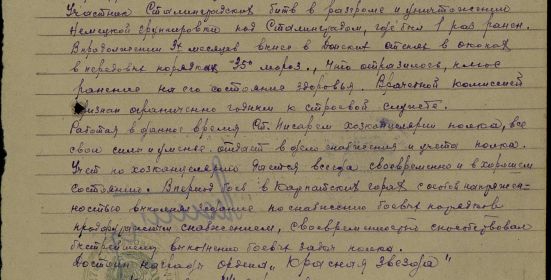 Участник Сталинградских битв в разгроме и уничтожении
Немецкой группировки под Сталинградом, где был 1 раз ранен.
В продолжении 3х месяцев в окопах
в передовых порядках -35° мороз., что отразилось,
ранение на его состояние здоровья. Врачебной комиссией
признан ограниченно годным к строевой службе.
Работая в данное время Ст. Писарем хозканцелярии полка, все
свои силы и уменье отдает в дело снабжения и учета полка.
Учет по хозканцелярии дается всегда своевременно и в хорошем
состоянии. В период боев в Карпатских горах с особой напряжен-
ностью выполнял задание по снабжению боевых порядков
продфуражным снабжением, своевременностью способствовал
быстрейшему выполнению боевых задач полка.
Достоин награды ордена „Красная Звезда"